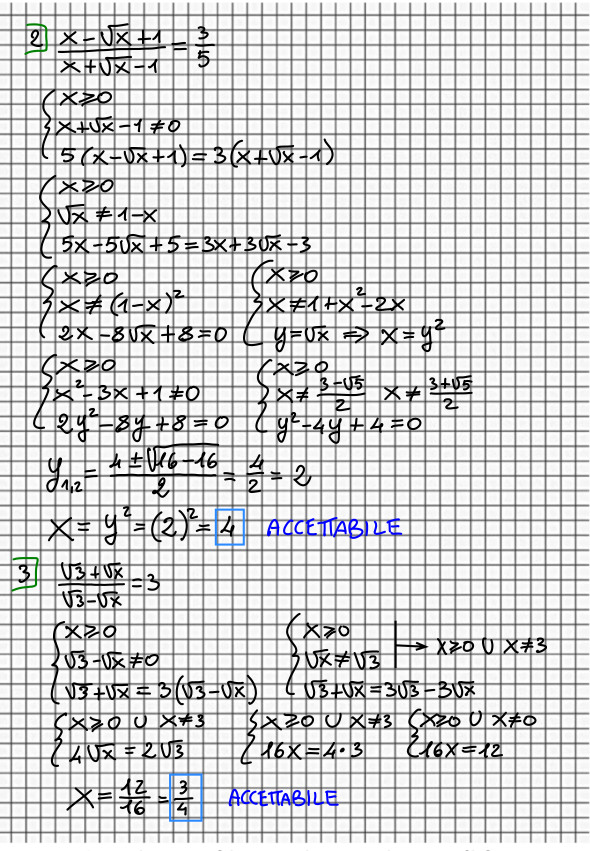 2 (x-√x+1)/(x+√x-1) = 3/5
{ x⩾0
x+√x-1≠0
5(x-√x+1)=3(x+√x-1)
{ x⩾0
√x≠1-x
5x-5√x+5=3x+3√x-3
{ x⩾0
x≠(1-x)²
2x-8√x+8=0
{ x⩾0
x≠1+x²-2x
y=√x ⇒ x=y²
{ x⩾0
x²-3x+1≠0
2y²-8y+8=0
{ x⩾0
x≠(3-√5)/2 x≠(3+√5)/2
y²-4y+4=0
y₁,₂ = (4±√(16-16))/2 = 4/2 = 2
x=y²=(2)²=4 ACCETTABILE
3 (√3+√x)/(√3-√x) = 3
{ x⩾0
√3-√x≠0
√3+√x=3(√3-√x)
{ x⩾0
√x≠√3 → x⩾0 ∪ x≠3
√3+√x=3√3-3√x
{ x⩾0 ∪ x≠3
4√x=2√3
{ x⩾0 ∪ x≠3
16x=4·3
{ x⩾0 ∪ x≠0
16x=12
x=12/16=3/4 ACCETTABILE